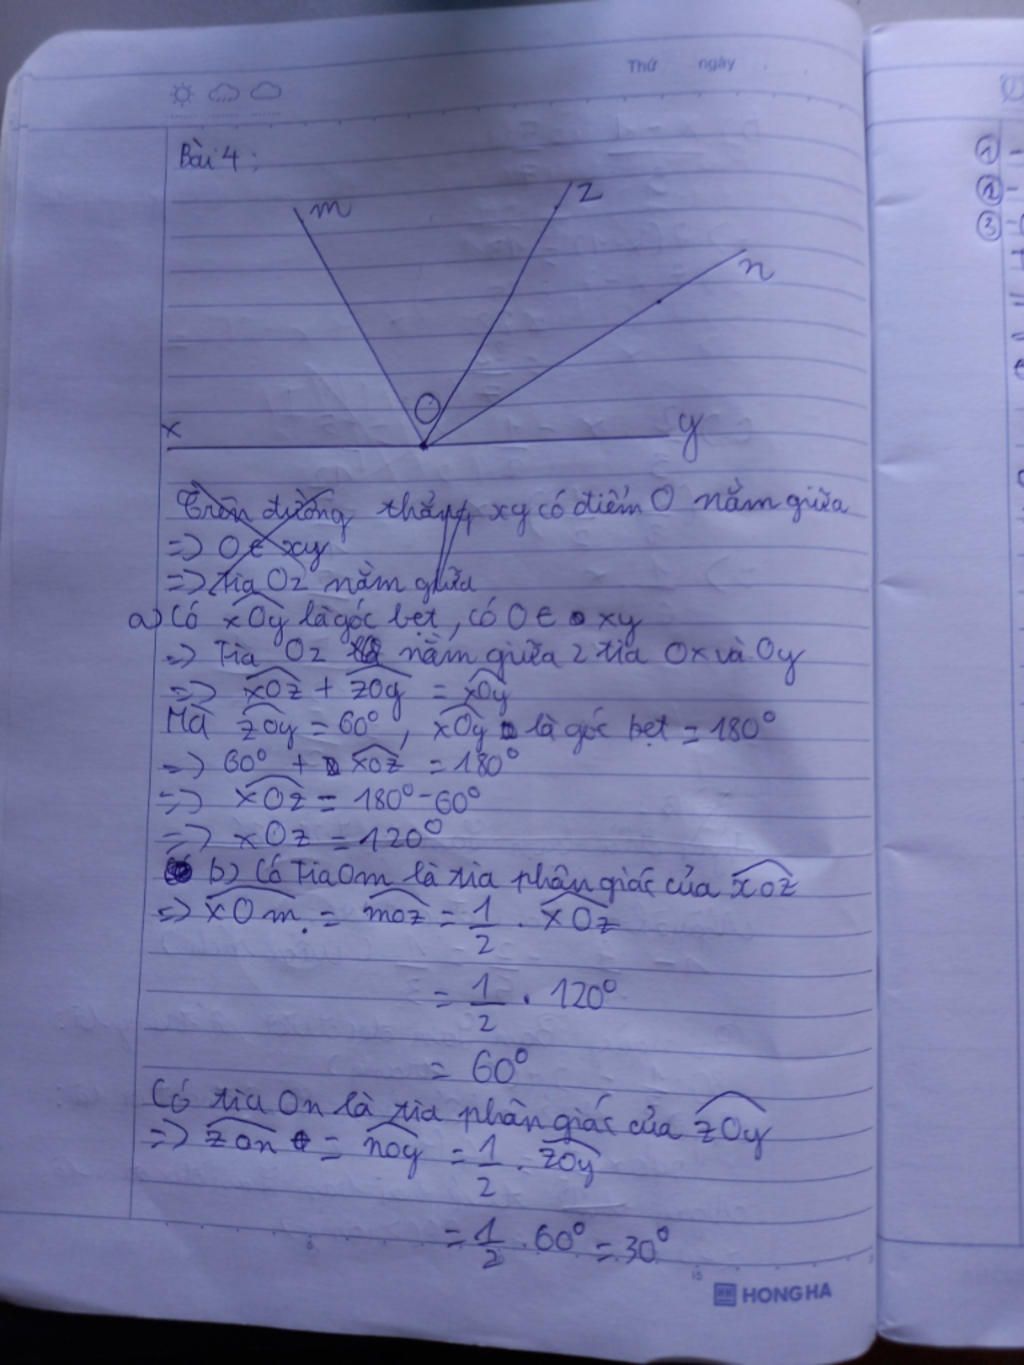 Thứ ngày
Bài 4:
m
z
n
O
x
y
Trên đường thẳng xy có điểm O nằm giữa
=> O ∈ xy
=> tia Oz nằm giữa
a) Có xOy là góc bẹt, có O ∈ xy
=> Tia Oz nằm giữa 2 tia Ox và Oy
=> xOz + zOy = xOy
Mà zOy = 60°, xOy là góc bẹt = 180°
=> 60° + xOz = 180°
=> xOz = 180° - 60°
=> xOz = 120°
b) Có Tia Om là tia phân giác của xOz
=> xOm = mOz = 1/2 . xOz
= 1/2 . 120°
= 60°
Có tia On là tia phân giác của zOy
=> zOn = nOy = 1/2 . zOy
= 1/2 . 60° = 30°
HONG HA
①
②
③